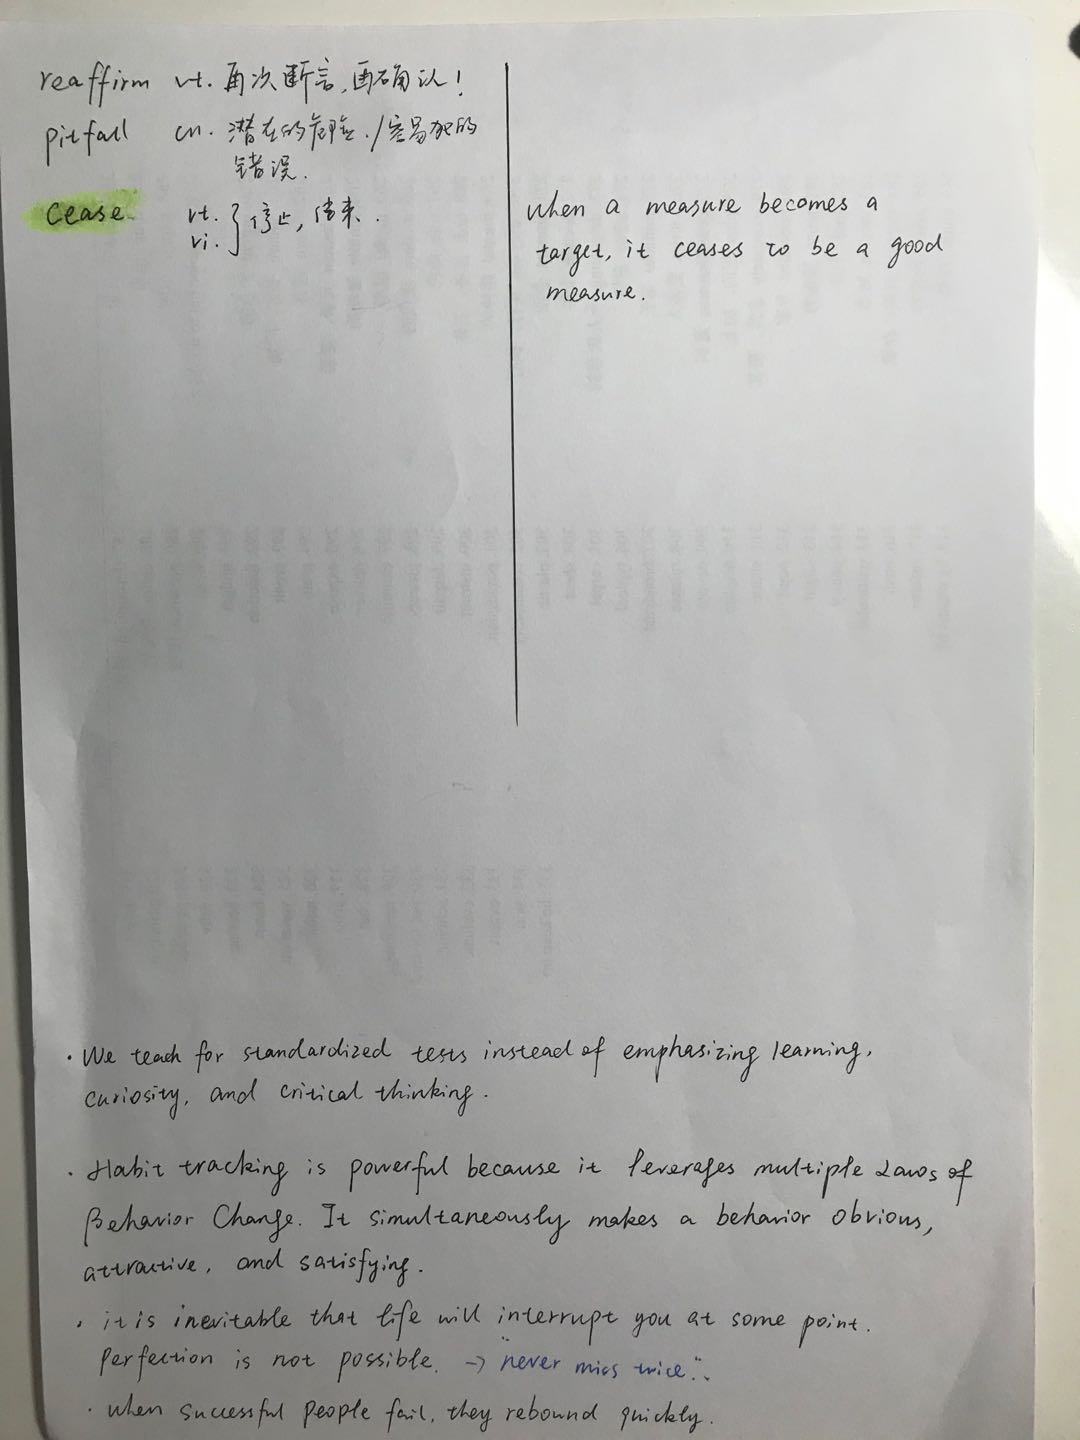 reaffirm vt. 再次断言,再确认!
pitfall cn. 潜在的危险./容易犯的
错误.
cease vt.
vi. } 停止,结束.
when a measure becomes a
target, it ceases to be a good
measure.
· We teach for standardized tests instead of emphasizing learning,
curiosity, and critical thinking.
· Habit tracking is powerful because it leverages multiple Laws of
Behavior Change. It simultaneously makes a behavior obvious,
attractive, and satisfying.
· it is inevitable that life will interrupt you at some point.
perfection is not possible. → "never miss twice".
· when successful people fail, they rebound quickly.